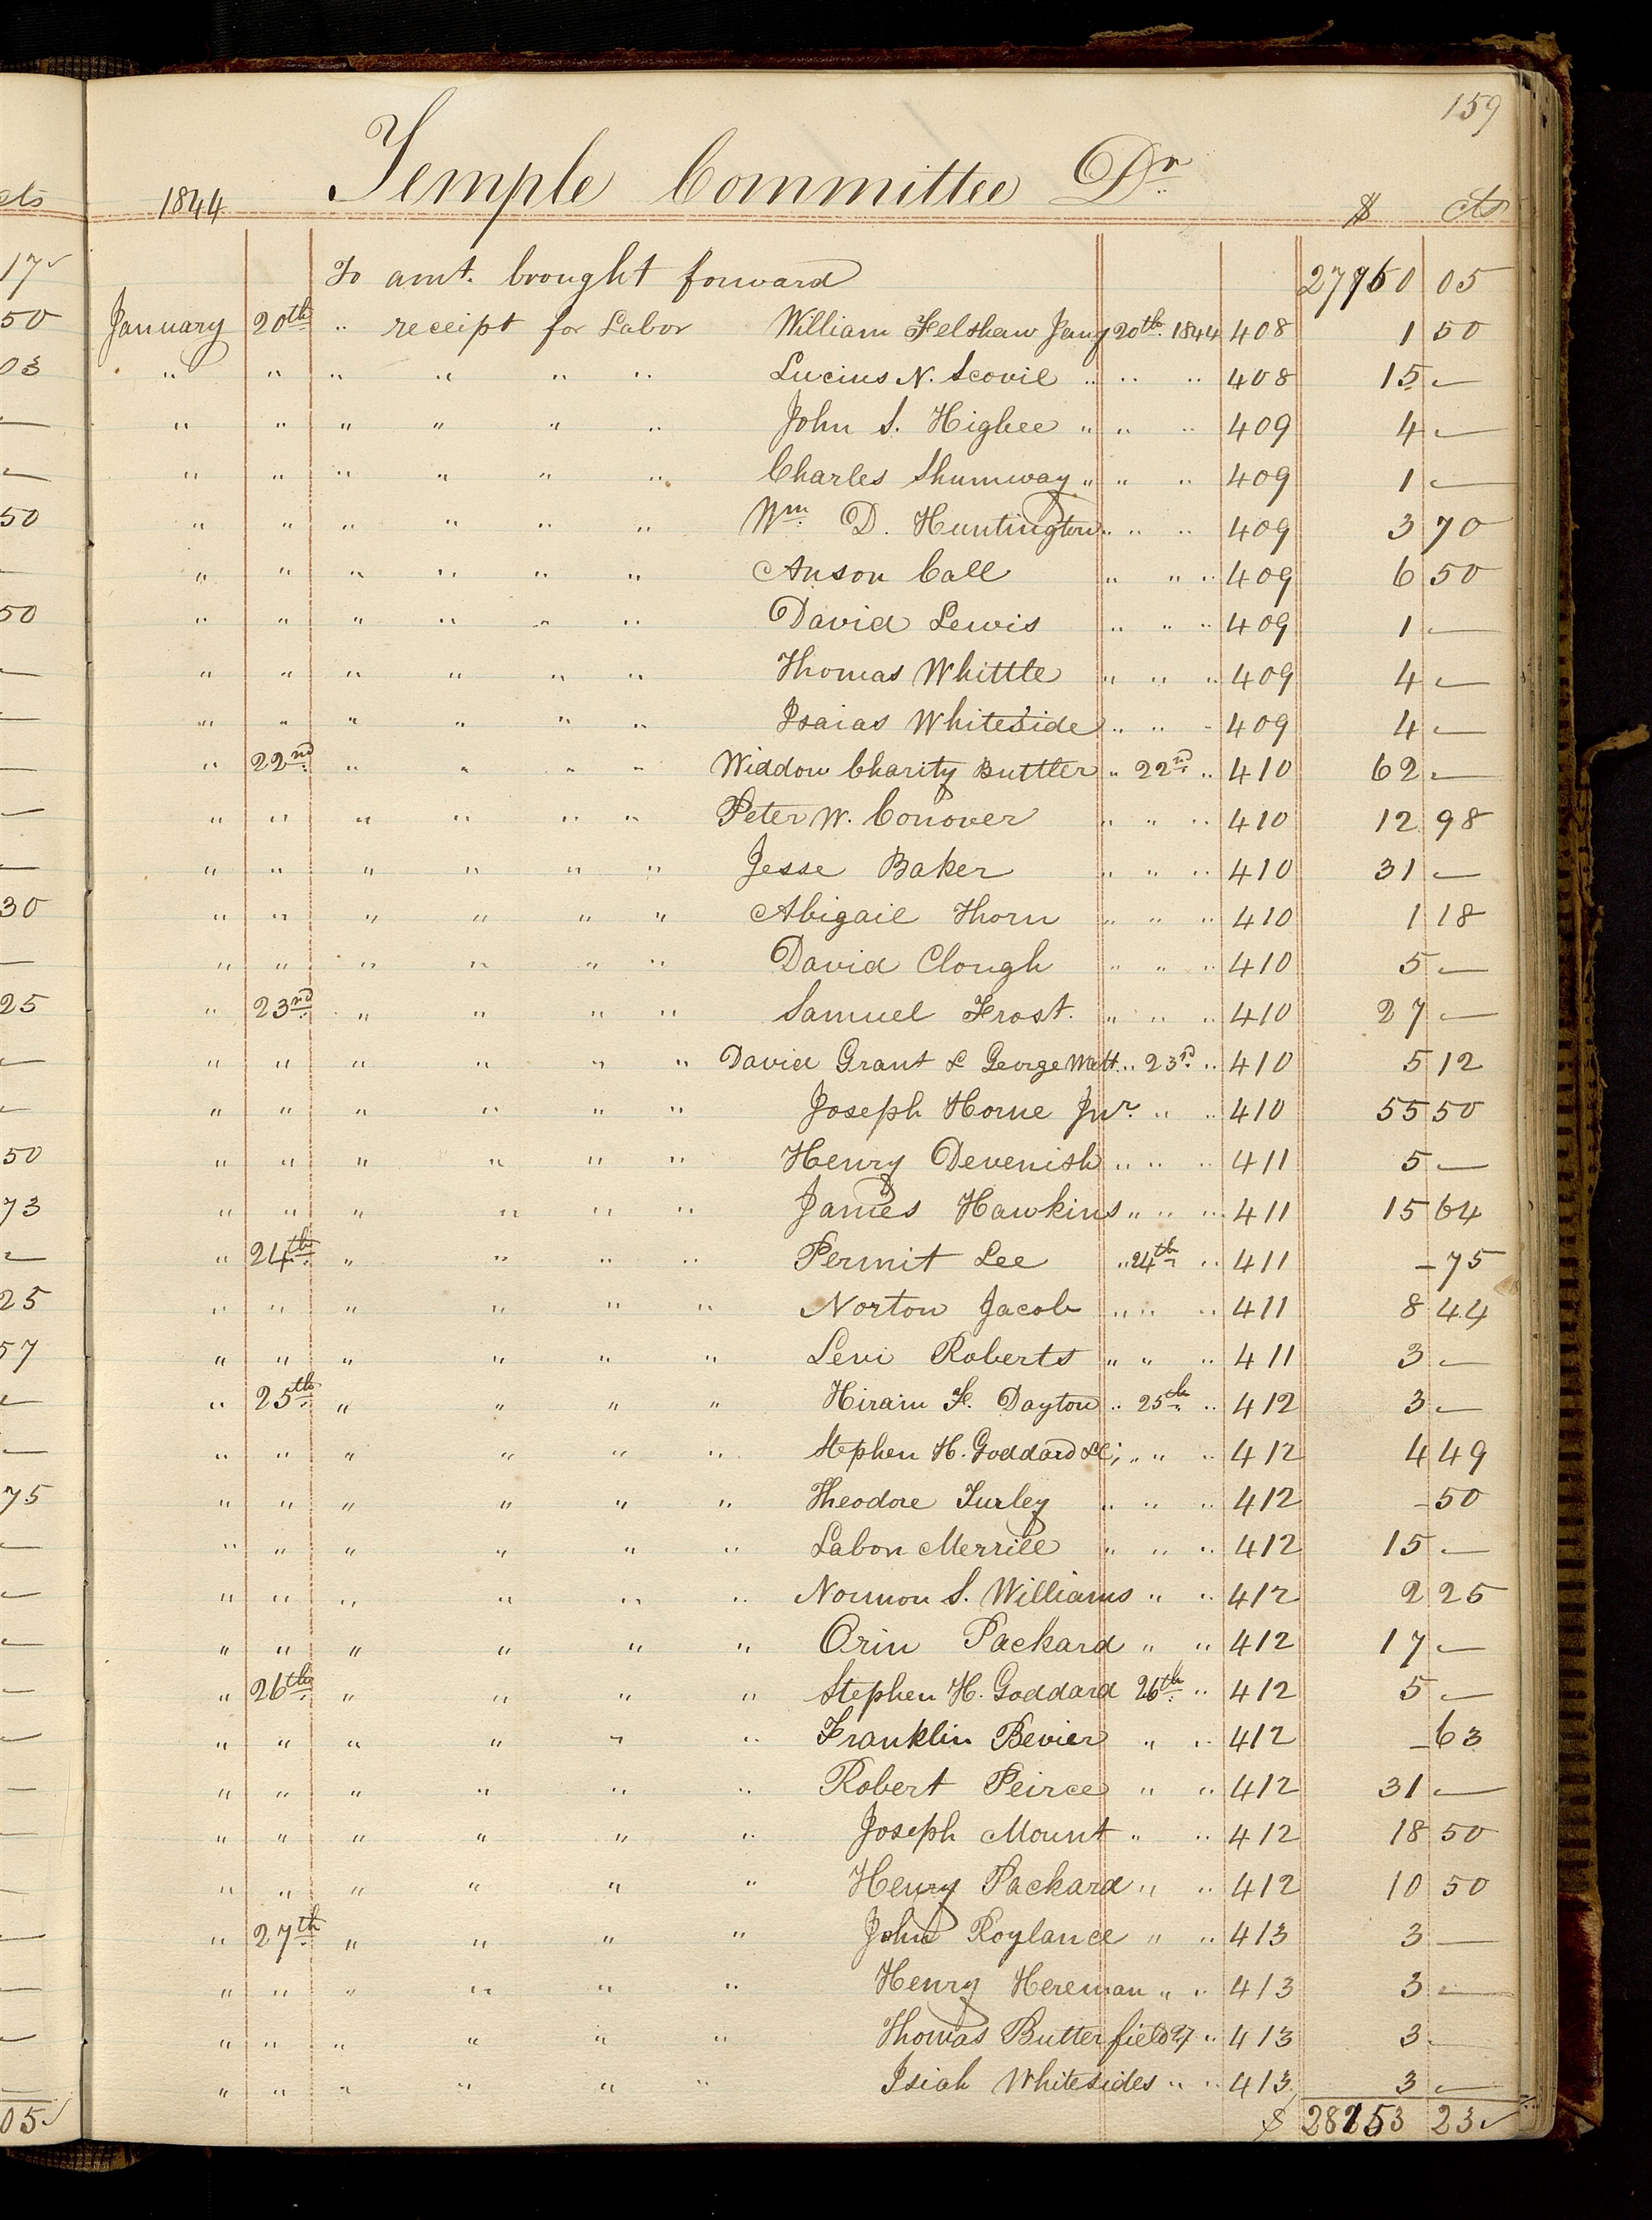 159
cts 1844 Temple Committee Dr. $ cts
17 To amt. brought forward 27750 05
50 January 20th " receipt for Labor William Felshaw Jany 20th 1844 408 1 50
03 " " " " " " Lucius N. Scovil " " " 408 15 —
— " " " " " " John S. Higbee " " " 409 4 —
— " " " " " " Charles Shumway " " " 409 1 —
50 " " " " " " Wm. D. Huntington " " " 409 3 70
— " " " " " " Anson Call " " " 409 6 50
50 " " " " " " David Lewis " " " 409 1 —
— " " " " " " Thomas Whittle " " " 409 4 —
— " " " " " " Isaias Whiteside " " " 409 4 —
— " 22nd " " " " Widdow Charity Buttler " 22nd " 410 62 —
— " " " " " " Peter W. Conover " " " 410 12 98
— " " " " " " Jesse Baker " " " 410 31 —
30 " " " " " " Abigail Thorn " " " 410 1 18
— " " " " " " David Clough " " " 410 5 —
25 " 23rd " " " " Samuel Frost. " " " 410 27 —
— " " " " " " David Grant & George Watt " 23rd " 410 5 12
— " " " " " " Joseph Horne Jnr. " " 410 55 50
50 " " " " " " Henry Devenish " " " 411 5 —
73 " " " " " " James Hawkins " " " 411 15 64
— " 24th " " " " Permit Lee " 24th " 411 – 75
25 " " " " " " Norton Jacob " " " 411 8 44
57 " " " " " " Levi Roberts " " " 411 3 —
— " 25th " " " " Hiram F. Dayton " 25th " 412 3 —
— " " " " " " Stephen H. Goddard &c; " " " 412 4 49
75 " " " " " " Theodore Turley " " " 412 – 50
— " " " " " " Labon Merrill " " " 412 15 —
— " " " " " " Normon S. Williams " " 412 2 25
— " " " " " " Orin Packard " " 412 17 —
— " 26th " " " " Stephen H. Goddard 26th " 412 5 —
— " " " " " " Franklin Bevier " " 412 – 63
— " " " " " " Robert Peirce " " 412 31 —
— " " " " " " Joseph Mount " " 412 18 50
— " " " " " " Henry Packard " " 412 10 50
— " 27th " " " " John Roylance " " 413 3 —
— " " " " " " Henry Hereman " " 413 3 —
— " " " " " " Thomas Butterfield 27 " 413 3 —
— " " " " " " Isiah Whitesides " " 413 3 —
05 $ 28153 23